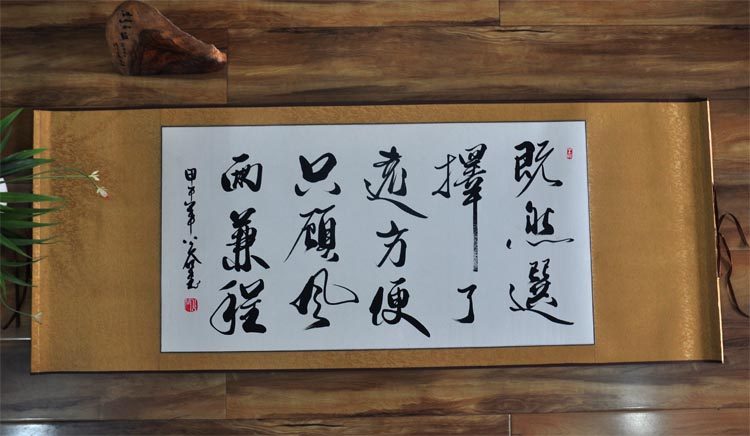 既然選
擇了
遠方便
只顧風
雨兼程
甲午年